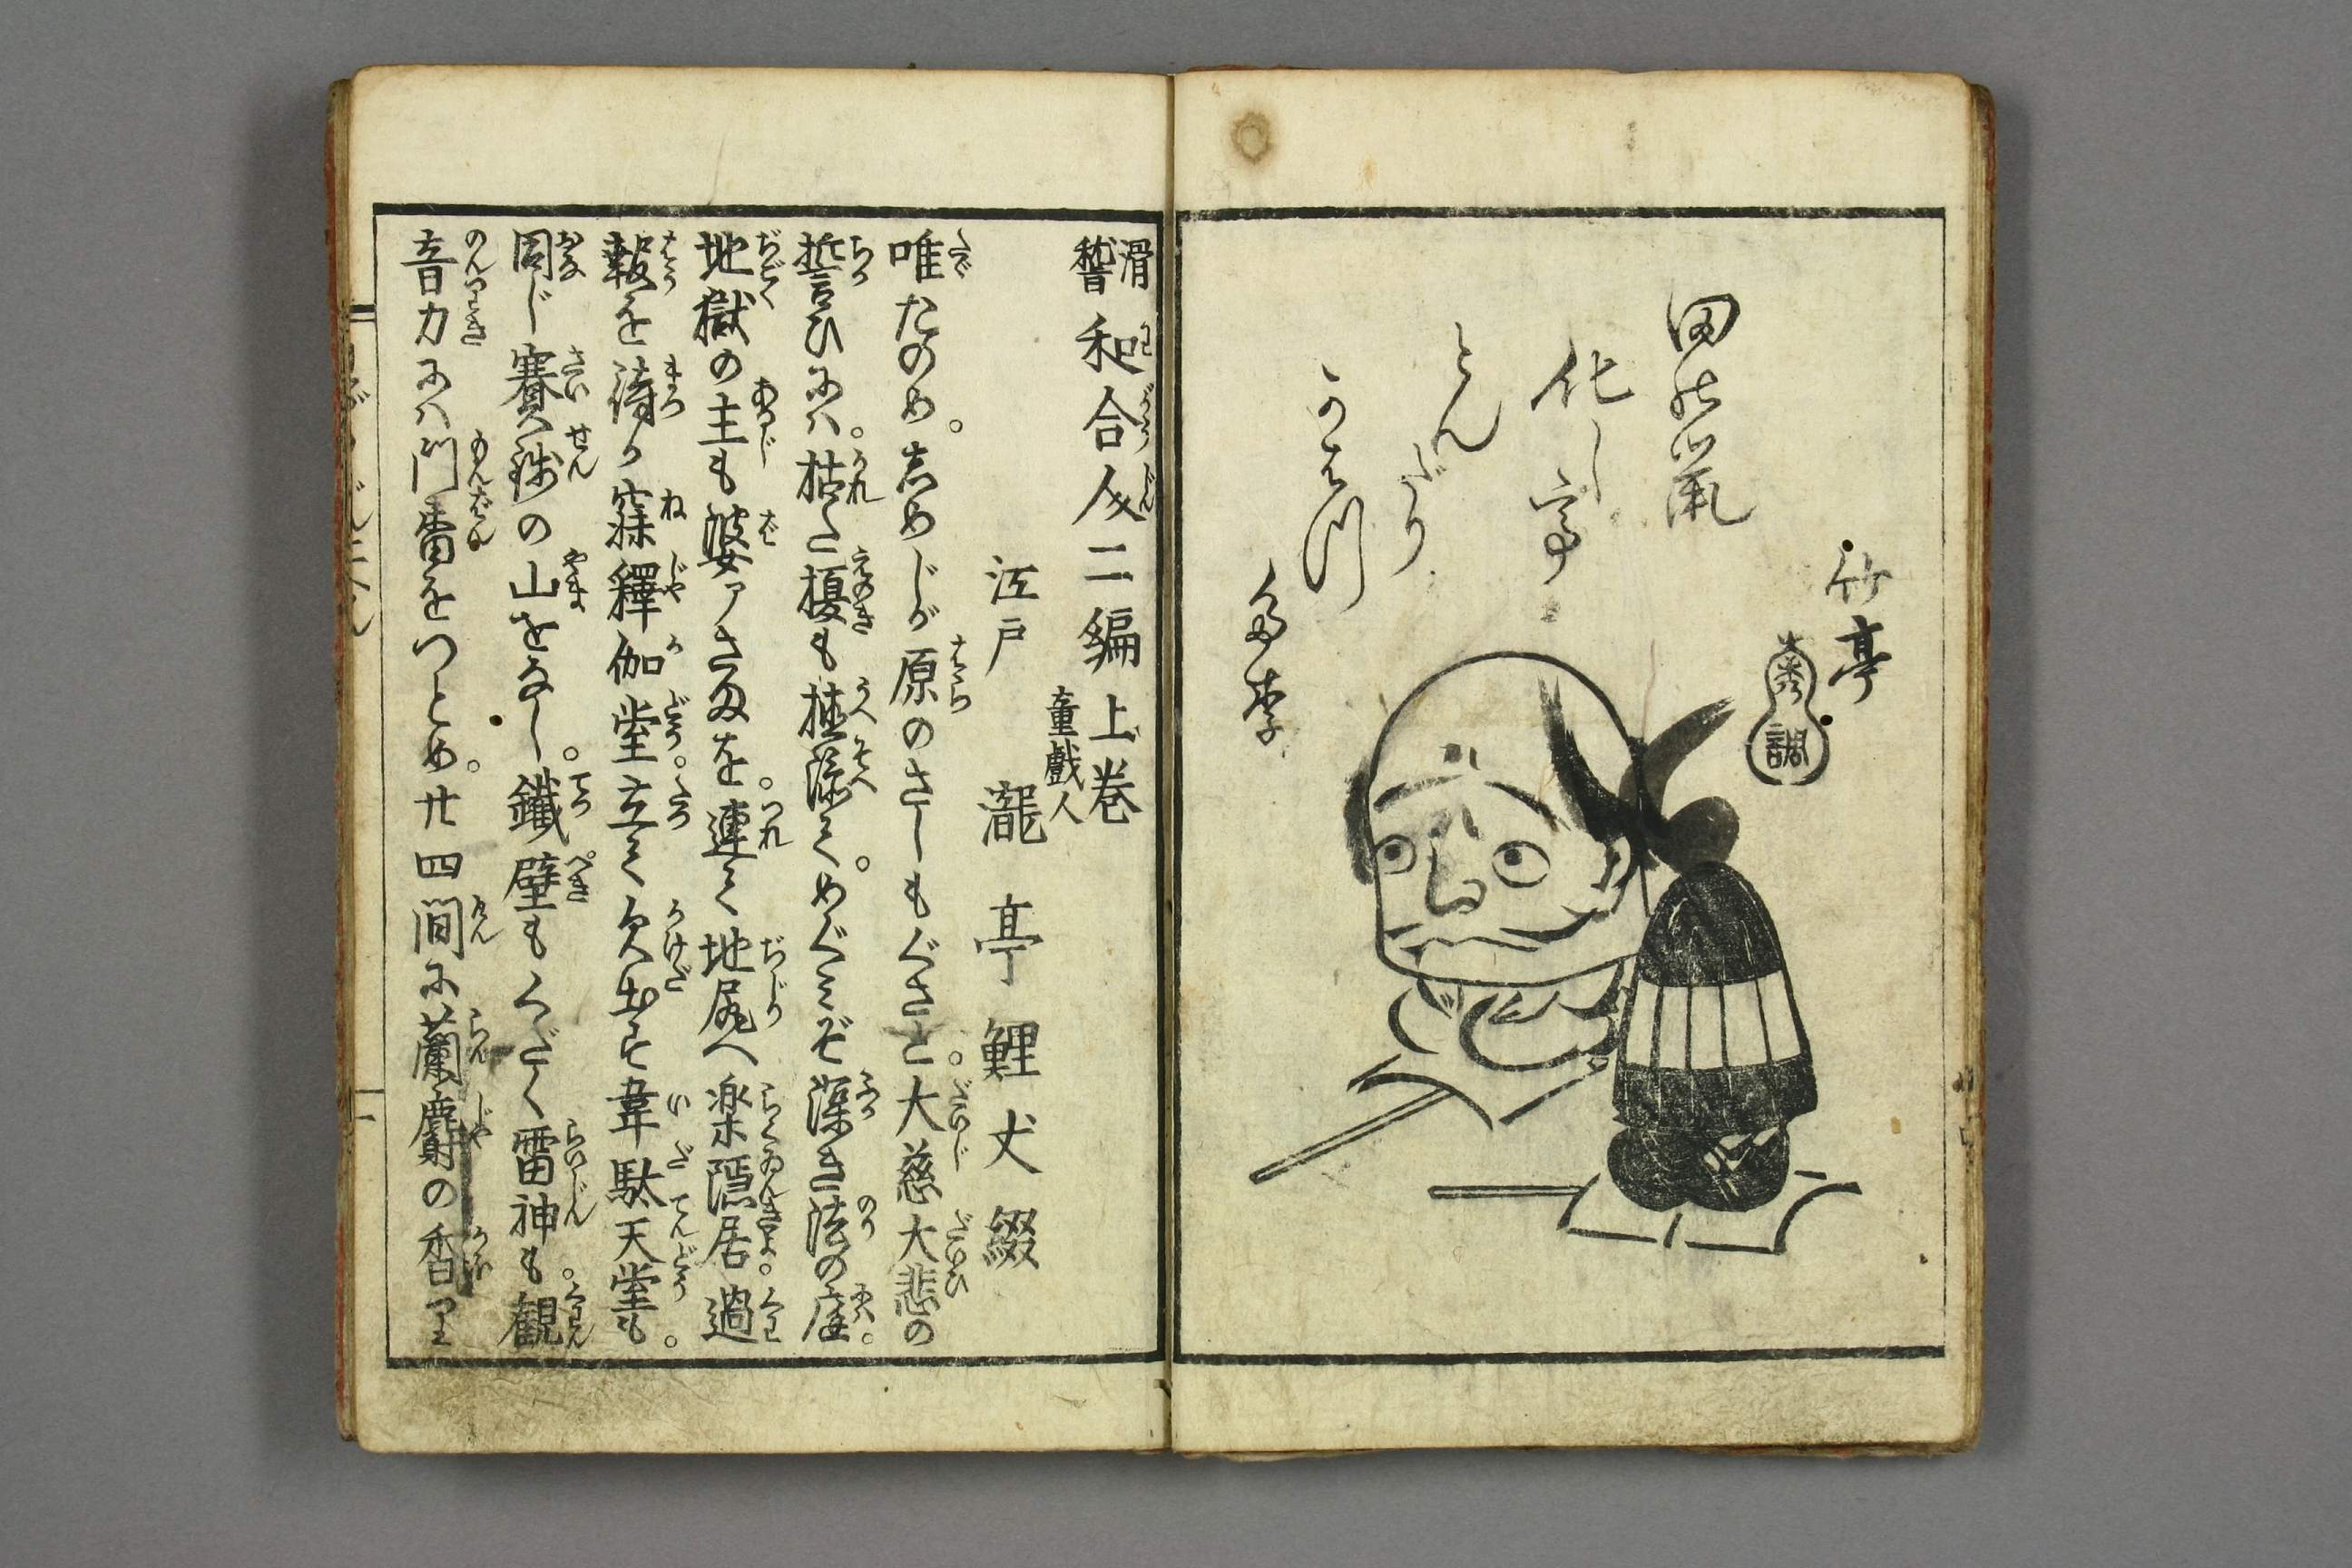 竹亭
秀調
化し亭
とん
だり
滑稽和合人二編上巻
江戸 童戯人 瀧亭鯉丈綴
唯たのめ。志めじが原のさしもぐさと。大慈大悲の
誓ひにハ。枯た榎も埴添て。めぐミぞ深き法の庭。
地獄の主も婆アさまを。連て地尻へ楽隠居。過
報を待か寐釋伽堂。立て欠出す韋駄天堂も。
同じ賽銭の山をなし。鐵壁もくだく雷神も。観
音力にハ門番をつとめ。廿四間に蘭麝の香里